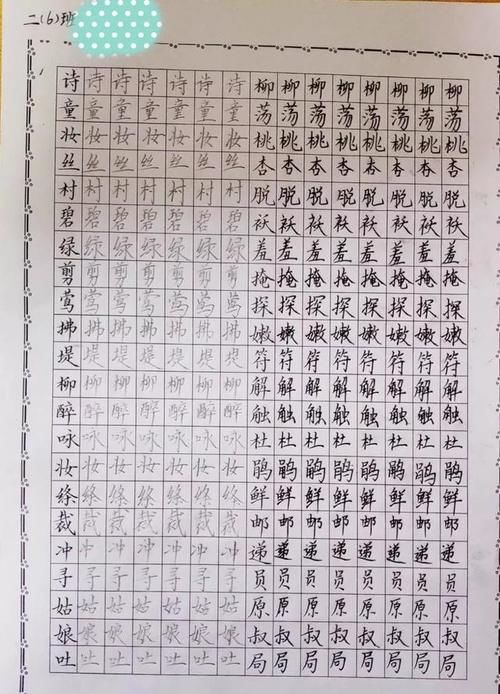 二(6)班
诗诗诗诗诗诗诗柳柳柳柳柳柳柳柳
童童童童童童童荡荡荡荡荡荡荡荡
妆妆妆妆妆妆妆桃桃桃桃桃桃桃桃
丝丝丝丝丝丝丝杏杏杏杏杏杏杏杏
村村村村村村村脱脱脱脱脱脱脱脱
碧碧碧碧碧碧碧袄袄袄袄袄袄袄袄
绿绿绿绿绿绿绿羞羞羞羞羞羞羞羞
剪剪剪剪剪剪剪掩掩掩掩掩掩掩掩
莺莺莺莺莺莺莺探探探探探探探探
拂拂拂拂拂拂拂嫩嫩嫩嫩嫩嫩嫩嫩
堤堤堤堤堤堤堤符符符符符符符符
柳柳柳柳柳柳柳解解解解解解解解
醉醉醉醉醉醉醉触触触触触触触触
咏咏咏咏咏咏咏杜杜杜杜杜杜杜杜
妆妆妆妆妆妆妆鹃鹃鹃鹃鹃鹃鹃鹃
绦绦绦绦绦绦绦鲜鲜鲜鲜鲜鲜鲜鲜
裁裁裁裁裁裁裁邮邮邮邮邮邮邮邮
冲冲冲冲冲冲冲递递递递递递递递
寻寻寻寻寻寻寻员员员员员员员员
姑姑姑姑姑姑姑原原原原原原原原
娘娘娘娘娘娘娘叔叔叔叔叔叔叔叔
吐吐吐吐吐吐吐局局局局局局局局